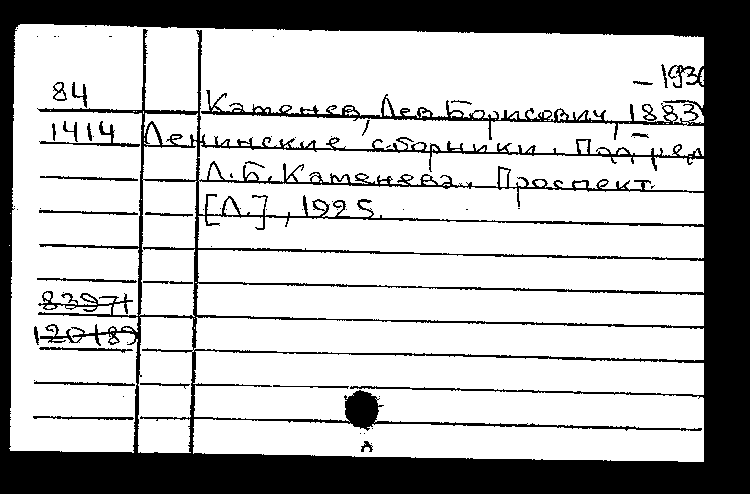 – 1936
84 Каменев, Лев Борисович, 1883
1414 Ленинские сборники. Под ред
Л.Б. Каменева. Проспект.
[Л.], 1925.
83971
120189